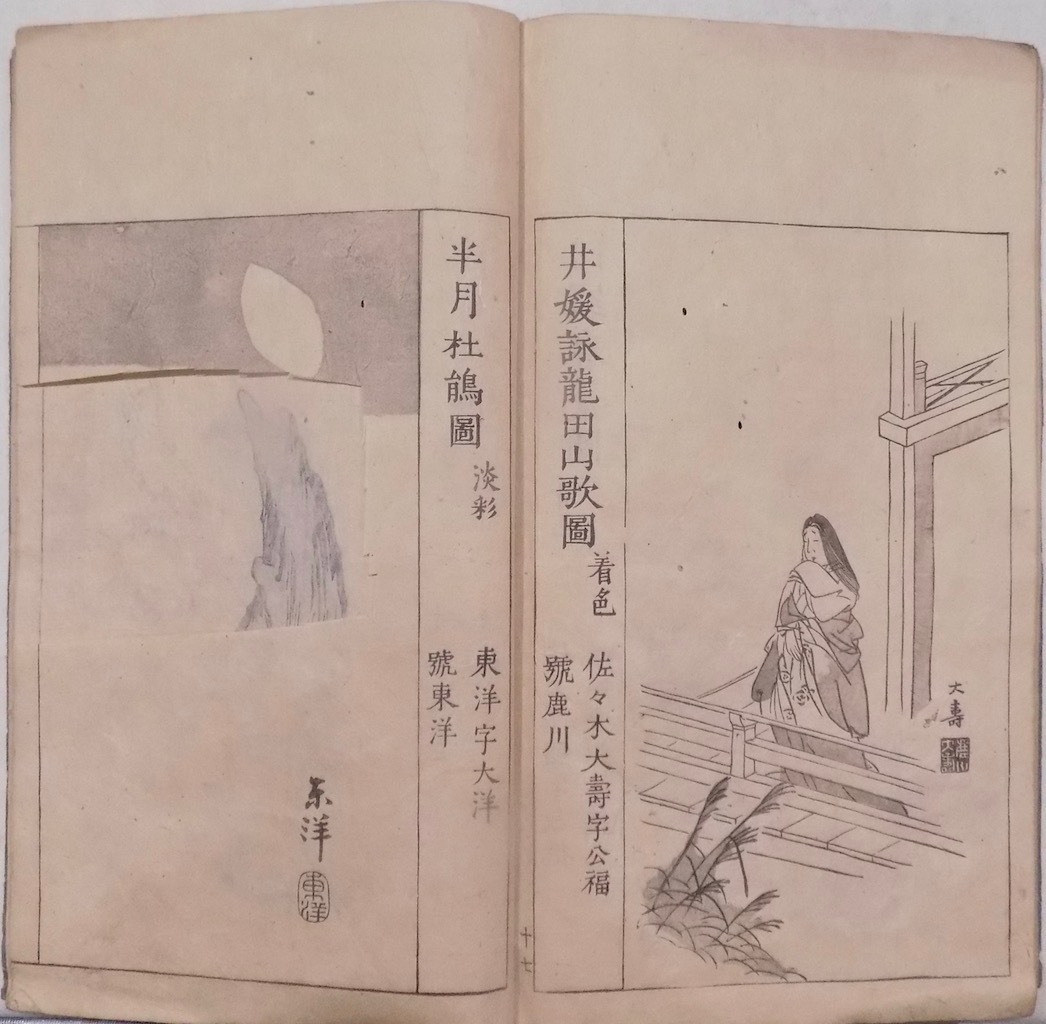 井媛詠龍田山歌圖
着色
佐々木大壽字公福
號鹿川
大壽
十七
半月杜鵑圖
淡彩
東洋字大洋
號東洋
东洋
東洋